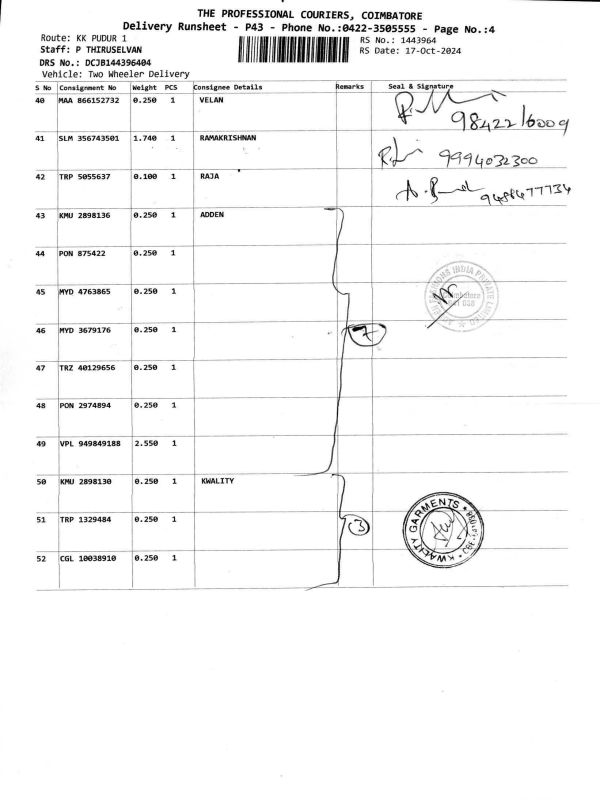 THE PROFESSIONAL COURIERS, COIMBATORE
Delivery Runsheet - P43 - Phone No.:0422-3505555 - Page No.:4
Route: KK PUDUR 1
RS No.: 1443964
Staff: P THIRUSELVAN
RS Date: 17-Oct-2024
DRS No.: DCJB144396404
Vehicle: Two Wheeler Delivery
S No Consignment No Weight PCS Consignee Details Remarks Seal & Signature
40 MAA 866152732 0.250 1 VELAN
98422 16009
41 SLM 356743501 1.740 1 RAMAKRISHNAN
9994032300
42 TRP 5055637 0.100 1 RAJA
43 KMU 2898136 0.250 1 ADDEN
44 PON 875422 0.250 1
45 MYD 4763865 0.250 1
46 MYD 3679176 0.250 1 7
47 TRZ 40129656 0.250 1
48 PON 2974894 0.250 1
49 VPL 949849188 2.550 1
50 KMU 2898130 0.250 1 KWALITY
51 TRP 1329484 0.250 1 3
KWALITY GARMENTS
52 CGL 10038910 0.250 1